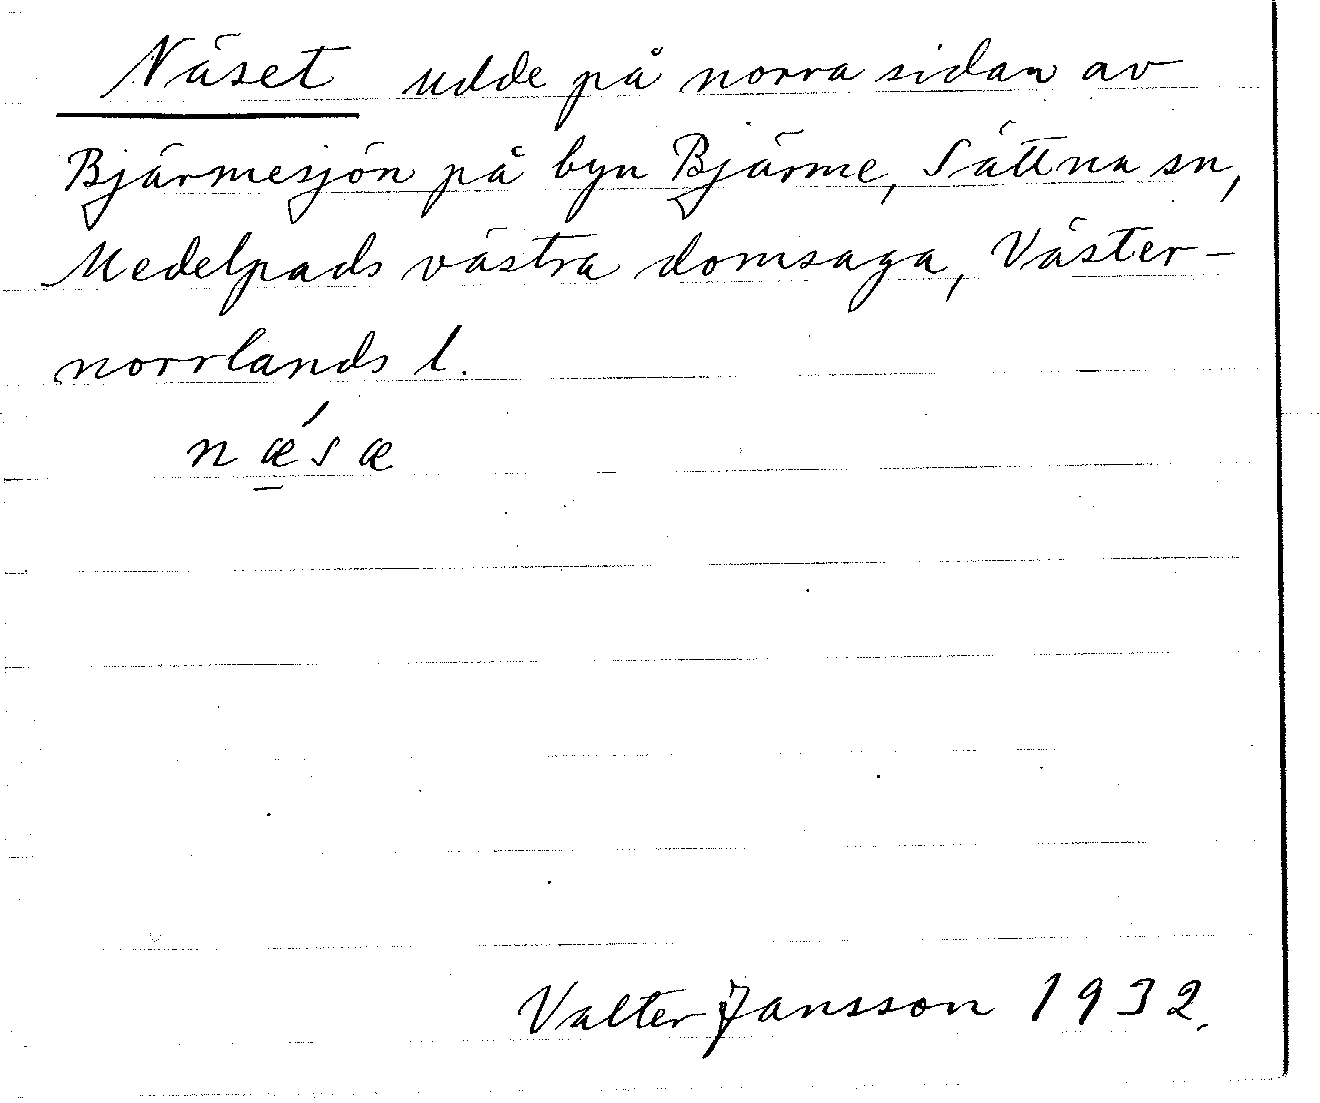 Näset udde på norra sidan av
Bjärmesjön på byn Bjärme, Sättna sn,
Medelpads västra domsaga, Väster-
norrlands l.
nǽ̱sæ
Valter Jansson 1932.